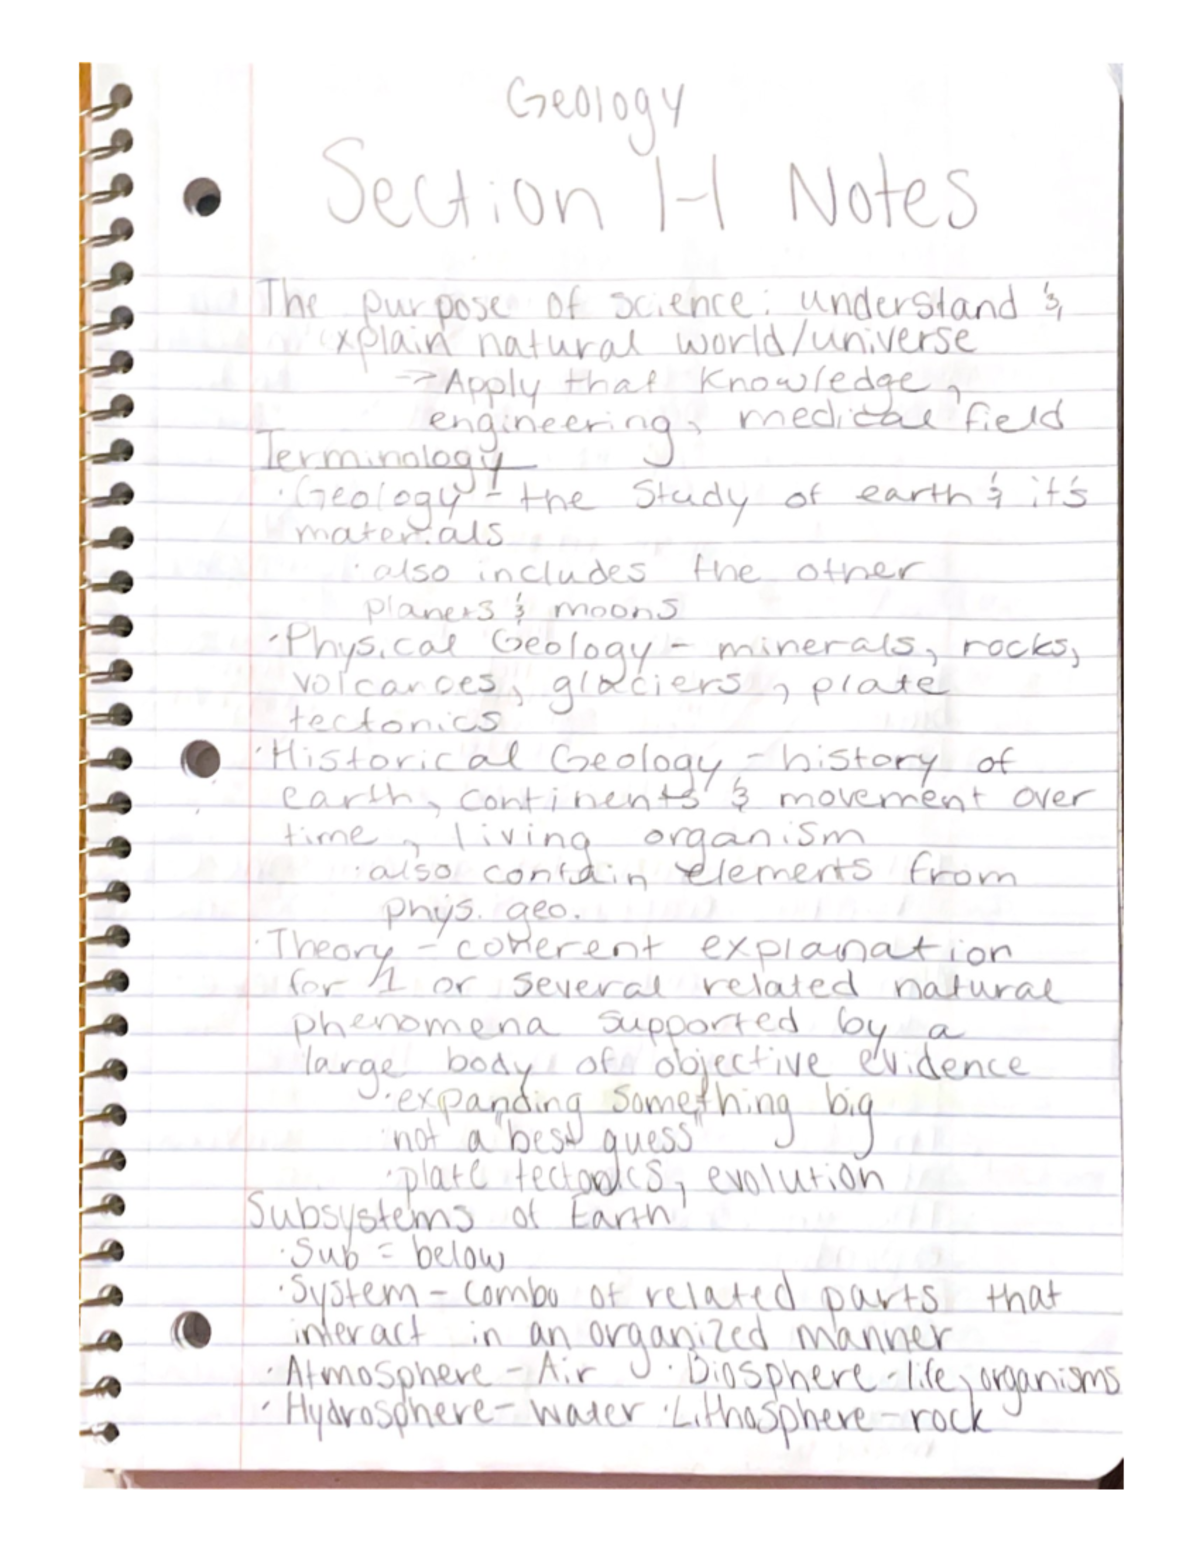 Geology
Section 1-1 Notes
The purpose of science: understand &
explain natural world/universe
→ Apply that knowledge,
engineering, medical field
Terminology
·Geology - the study of earth & it's
materials
·also includes the other
planets & moons
·Physical Geology - minerals, rocks,
volcanoes, glaciers, plate
tectonics
·Historical Geology - history of
earth, continents & movement over
time, living organism
·also contain elements from
phys. geo.
·Theory - coherent explanation
for 1 or several related natural
phenomena supported by a
large body of objective evidence
·expanding something big
not a "best guess"
·plate tectonics, evolution
Subsystems of Earth
·Sub = below
·System - combo of related parts that
interact in an organized manner
·Atmosphere - Air ·Biosphere - life, organisms
·Hydrosphere - water ·Lithosphere - rock